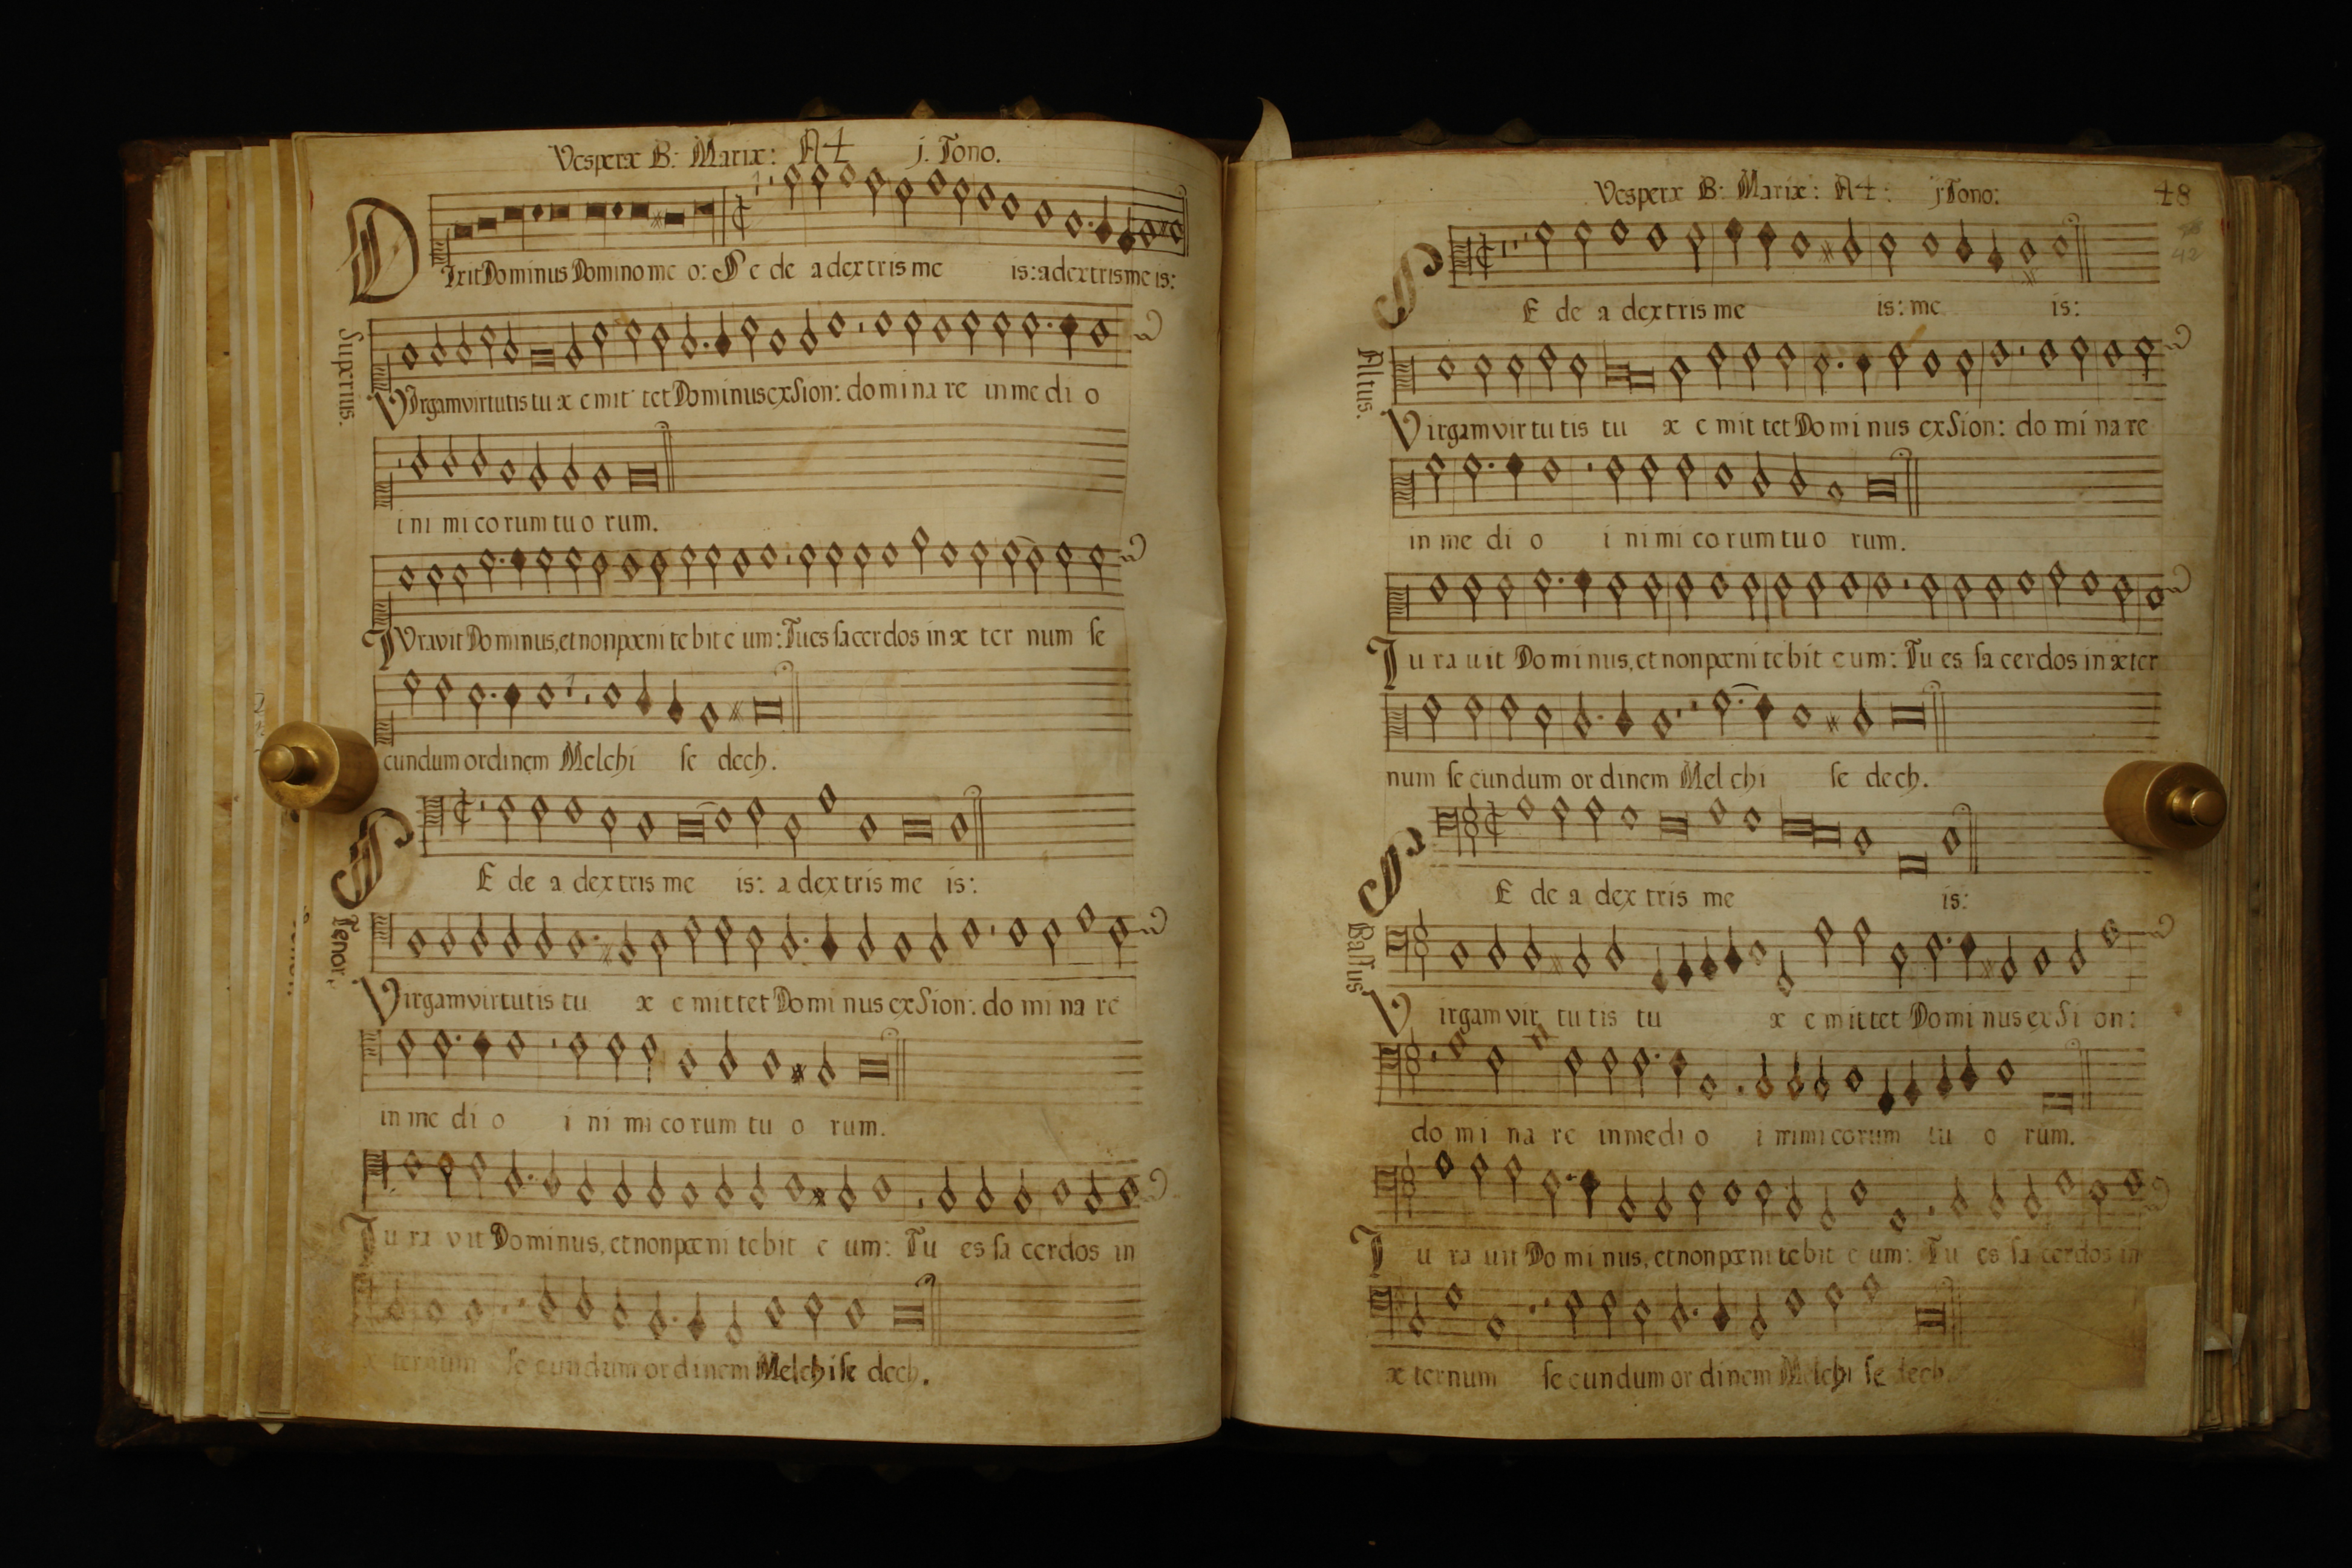 Vesperæ B: Mariæ: A4 j. Tono.
DIxit Dominus Domino meo: Sede a dextris meis: a dextris meis:
Superius.
VIrgam virtutis tuæ emittet Dominus ex Sion: dominare in medio
inimicorum tuorum.
IVravit Dominus, et non pœnitebit eum: Tu es sacerdos in æternum se
cundum ordinem Melchisedech.
SEde a dextris meis: a dextris meis:
Tenor.
Virgam virtutis tuæ emittet Dominus ex Sion: dominare
in medio inimicorum tuorum.
Juravit Dominus, et non pœnitebit eum: Tu es sacerdos in
æternum secundum ordinem Melchisedech.
Vesperæ B: Mariæ: A4: j Tono:
48
42
SEde a dextris meis: meis:
Altus.
Virgam virtutis tuæ emittet Dominus ex Sion: dominare
in medio inimicorum tuorum.
Jurauit Dominus, et non pœnitebit eum: Tu es sacerdos in æter
num secundum ordinem Melchisedech.
SEde a dextris meis:
Bassus
Virgam virtutis tuæ emittet Dominus ex Sion:
dominare in medio inimicorum tuorum.
Jurauit Dominus, et non pœnitebit eum: Tu es sacerdos in
æternum secundum ordinem Melchisedech.